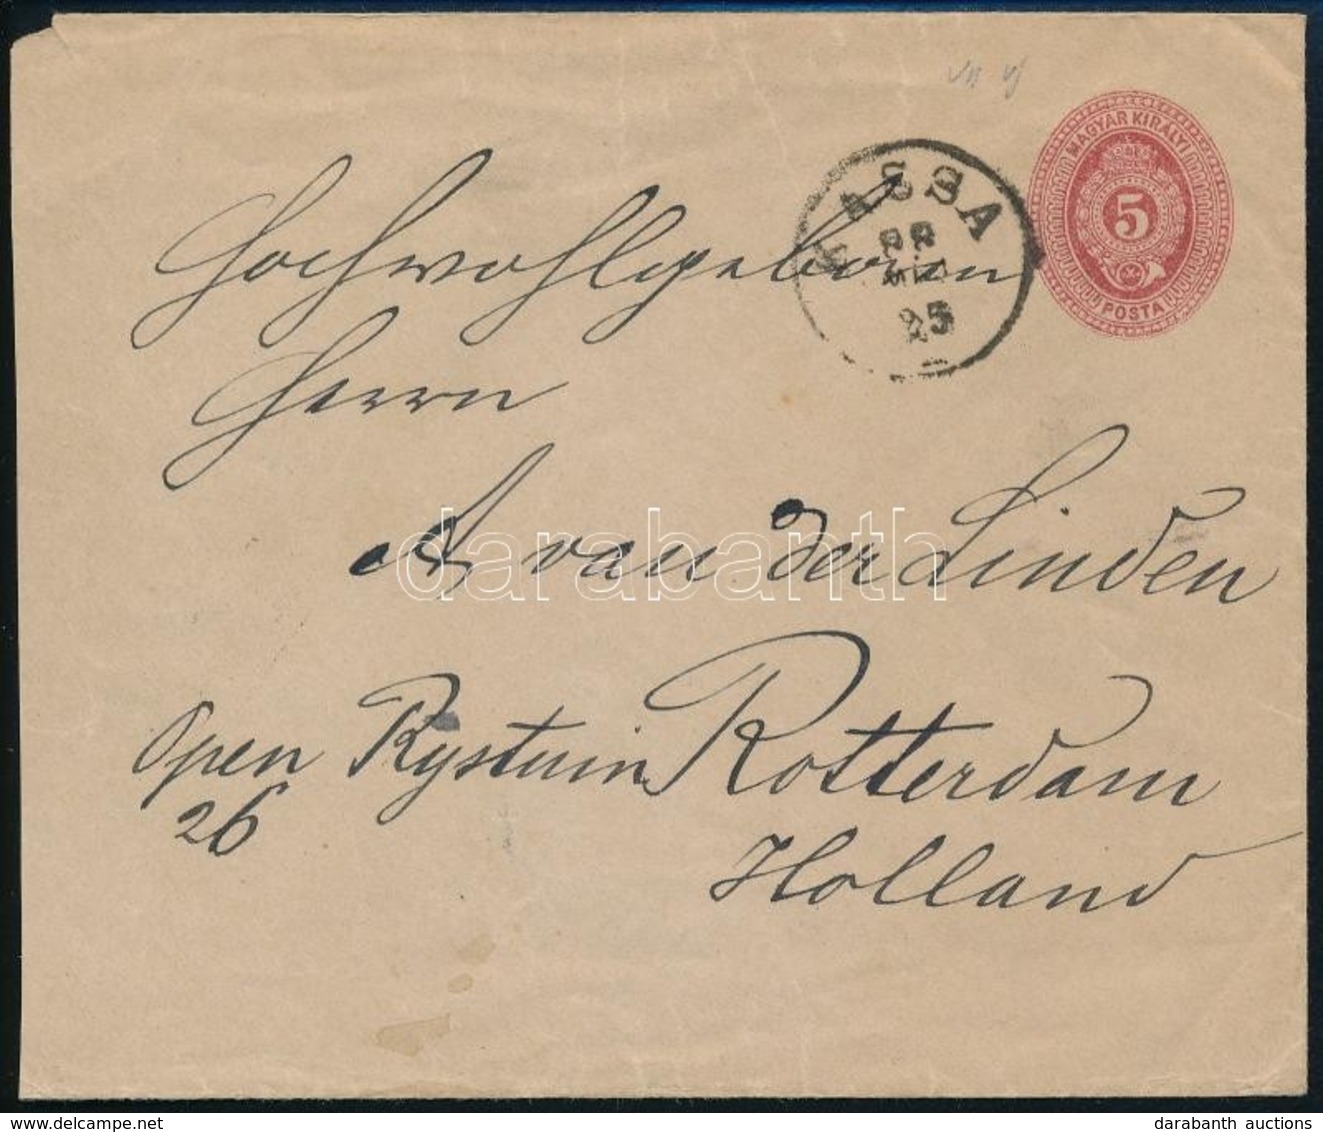 MAGYAR KIRÁLYI
5
POSTA
KASSA
25
Hochwohlgeboren
Herrn
A van der Linden
Open Rystuin Rotterdam
26
Holland
darabanth
www.delcampe.net
darabanth auctions